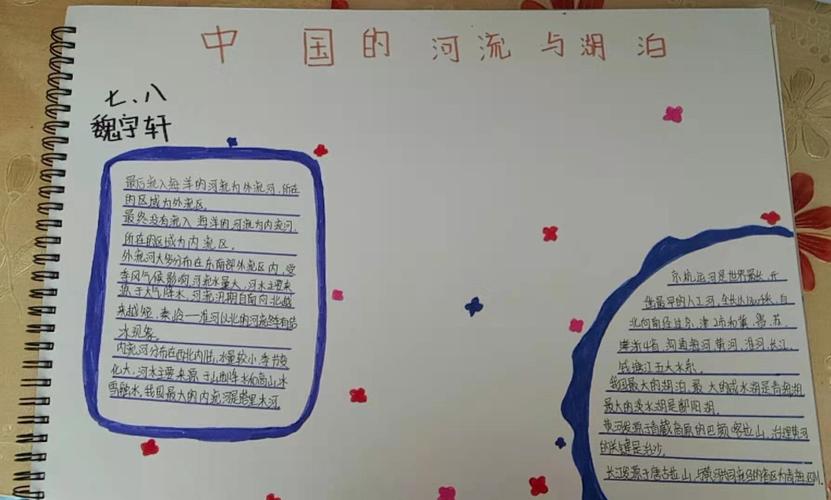 中国的河流与湖泊
七、八
魏宇轩
最后流入海洋的河流为外流河,所在
的区域为外流区。
最终没有流入海洋的河流为内流河,
所在的区域为内流区。
外流河大多分布在东南部外流区内,受
季风气候影响,河流水量大,河水主要来
源于大气降水,河流汛期自南向北越
来越短,秦岭一淮河以北的河流冬有结
冰现象。
内流河分布在西北内陆,水量较小,季节变
化大,河水主要来源于山地降水和高山冰
雪融水,我国最大的内流河是塔里木河。
京杭运河是世界最长,开
凿最早的人工河,全长
北向南经过京、津2市和冀、鲁、苏、
浙4省,沟通海河,黄河,淮河,长江,
钱塘江五大水系。
我国最大的湖泊,最大的咸水湖是青海湖
最大的淡水湖是鄱阳湖。
黄河发源于青藏高原的巴颜喀拉山,治理黄河
的关键是治沙。
长江发源于唐古拉山,与黄河共同流经的省区为青海